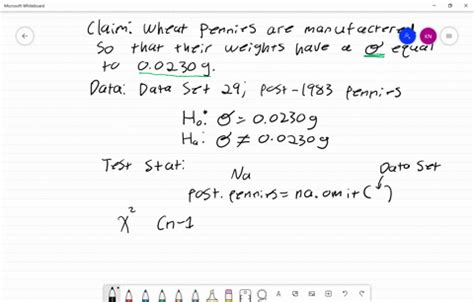 Microsoft Whiteboard
Claim: Wheat Pennies are manufactured
KN
so that their weights have a σ equal
to 0.0230g.
Data: Data Set 29; post-1983 pennies
H₀: σ = 0.0230g
Hₐ: σ ≠ 0.0230g
Test Stat:
Data Set
Na
post.pennies = na.omit( )
χ² (n-1